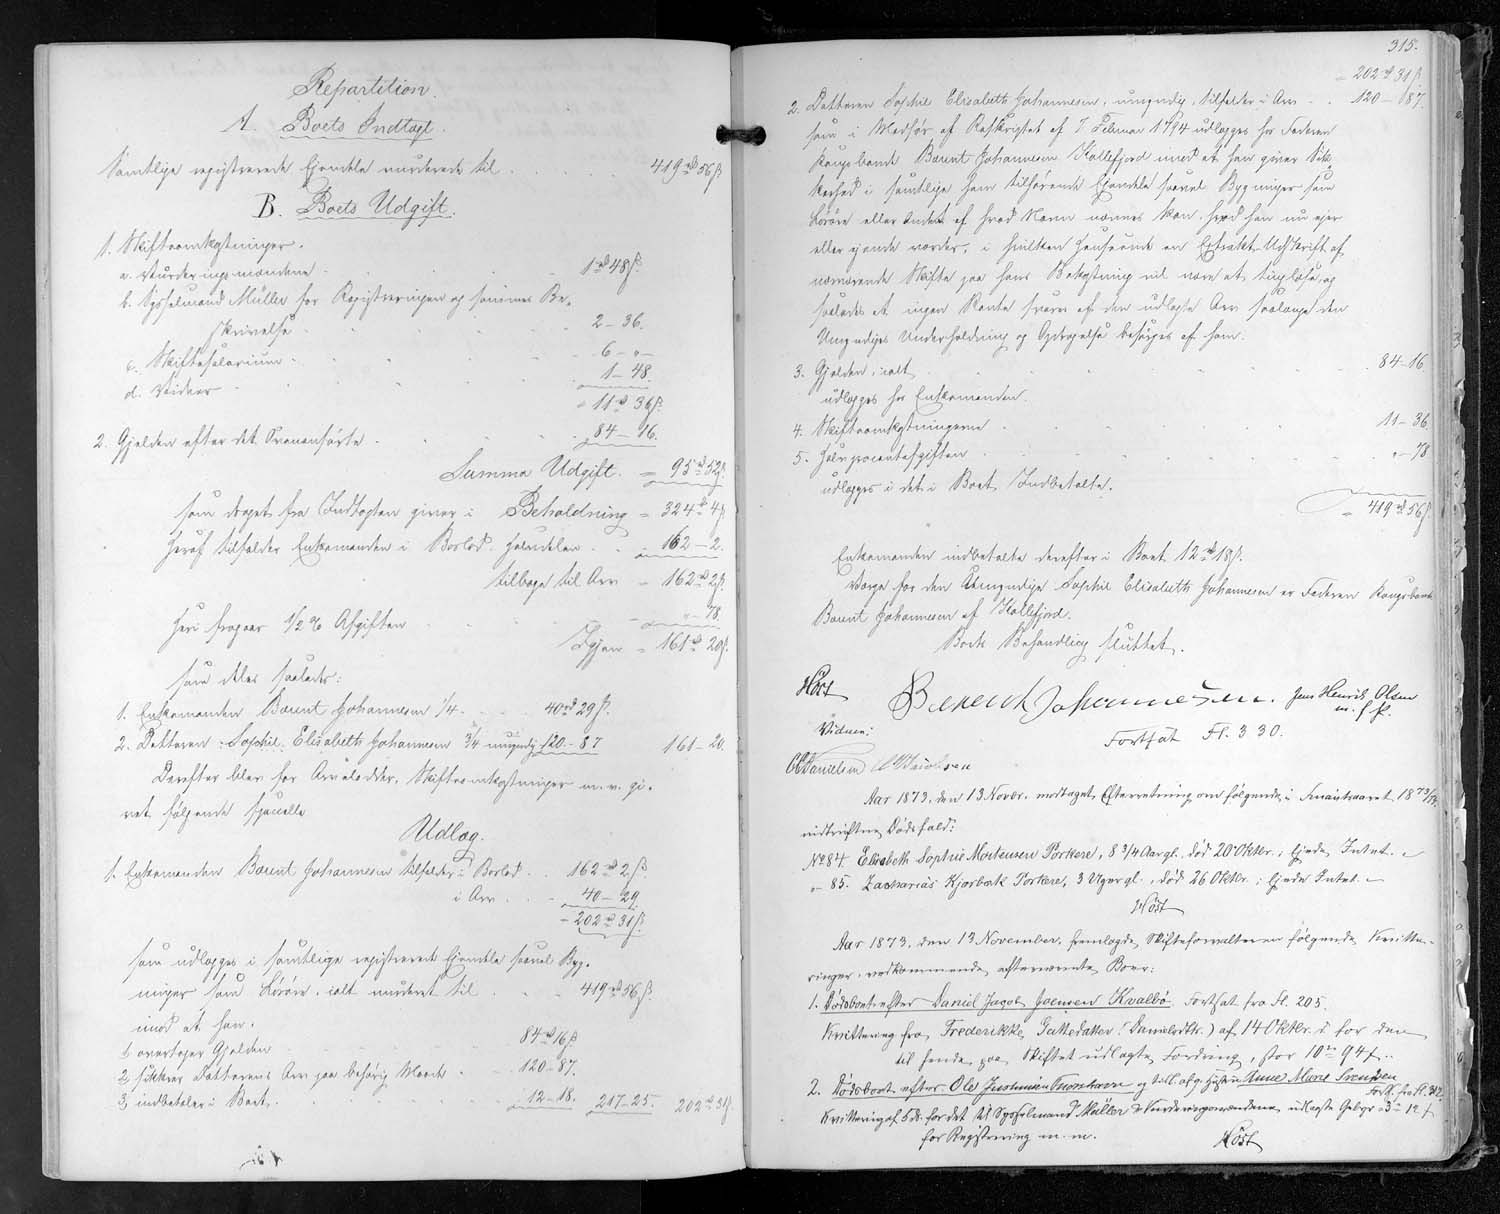 Repartition.
A. Boets Indtægt.
Samtlige registrerede Ejendele vurderede til . . . 419 rd 56 ß
B. Boets Udgift.
1. Skifteomkostninger.
a. Vurderingsmændene . . . 1 rd 48 ß.
b. Sysselmand Müller for Registreringen og sammes Be-
skrivelse . . . 2 - 36.
c. Skiftesalarium . . . 6 - " -
d. Vidner . . . 1 - 48.
= 11 rd 36 ß.
2. Gjelden efter det Ovenanførte . . . 84 - 16.
Summa Udgift. = 95 rd 52 ß.
som draget fra Indtægten giver i Beholdning = 324 rd 4 ß.
Heraf tilfalder Enkemanden i Boslod Halvdelen . . 162 - 2.
tilbage til Arv = 162 rd 2 ß.
Heri fragaar 1/2 % Afgiften . . . " - 78.
Igjen = 161 rd 20 ß.
som deles saaledes:
1. Enkemanden Barent Johannesen 1/4 . . . 40 rd 29 ß.
2. Datteren Sophie Elisabeth Johannesen 3/4 umyndig 120 - 87 161 - 20.
Derefter blev for Arvelodder, Skifteomkostninger m.v. gi-
vet følgende specielle
Udlæg.
1. Enkemanden Barent Johannesen tilfalder i Boslod . . 162 rd 2 ß.
i Arv . . . 40 - 29.
= 202 rd 31 ß.
som udlægges i samtlige registrerede Ejendele saavel Byg-
ninger som Løsøre, ialt vurderet til . . . 419 rd 56 ß.
imod at han:
1, overtager Gjelden . . . 84 rd 16 ß.
2, sikkrer Datterens Arv paa behørig Maade . . 120 - 87.
3, indbetaler i Boet . . . 12 - 18. 217 - 25. 202 rd 31 ß.
315.
= 202 rd 31 ß.
2. Datteren Sophie Elisabeth Johannesen, umyndig, tilfalder i Arv . . 120 - 87.
som i Medfør af Reskriptet af 7 Februar 1794 udlægges hos Faderen
Kongsbonde Barent Johannesen Kollefjord imod at han giver Sik-
kerhed i samtlige ham tilhørende Ejendele saavel Bygninger som
Løsøre eller andet af hvad Navn nævnes kan, hvad han nu ejer
eller ejende vorder, i hvilken Henseende en Extrakt Udskrift af
nærværende Skifte paa hans Bekostning vil være at tinglæse, og
saaledes at ingen Rente svares af den udlagte Arv saalænge den
Umyndiges Underholdning og Opdragelse besørges af ham.
3. Gjelden, ialt . . . 84 - 16.
udlægges hos Enkemanden.
4. Skifteomkostningerne . . . 11 - 36.
5. Halvprocentafgiften . . . " - 78
udlægges i det i Boet Indbetalte.
= 419 rd 56 ß.
Enkemanden indbetalte derefter i Boet 12 rd 18 ß.
Værge for den Umyndige Sophie Elisabeth Johannesen er Faderen Kongsbonde
Barent Johannesen af Kollefjord.
Boets Behandling sluttet.
Høst Berendt Johannesen. Jens Henrik Olsen
m. f. P.
Vidner: Fortsat Fl. 330.
CDanielsen Jacobsen
Aar 1873, den 13 Novbr. modtaget Efterretning om følgende, i Finantsaaret 1873/74
indtrufne Dødsfald:
No 84. Elisabeth Sophie Mortensen Porkere, 8 3/4 Aar gl., død 20 Oktbr.; Ejede Intet. -
" 85. Zacharias Kjærbæk Porkere, 3 Uger gl., død 26 Oktbr.; Ejede Intet. -
Høst
Aar 1873, den 13 November, fremlagde Skifteforvalteren følgende Kvitte-
ringer, vedkommende efternævnte Boer:
1. Dødsboet efter Daniel Jacob Joensen Kvalbø. Fortsat fra Fl. 205.
Kvittering fra Frederikke Guttedatter (Danielsdtr.) af 14 Oktbr. d. for den
til hende paa Skiftet udlagte Fordring, stor 10 rd 94 ß.
2. Dødsboet efter Ole Justinusen Thorshavn og tidl. afg. Hustru Anne Marie Svendsen
Forts. fra Fl. 312.
Kvittering af 5 ds. for det til Sysselmand Müller & Vurderingsmændene udlagte Gebyr 3 rd 12 ß
for Registrering m. m. Høst